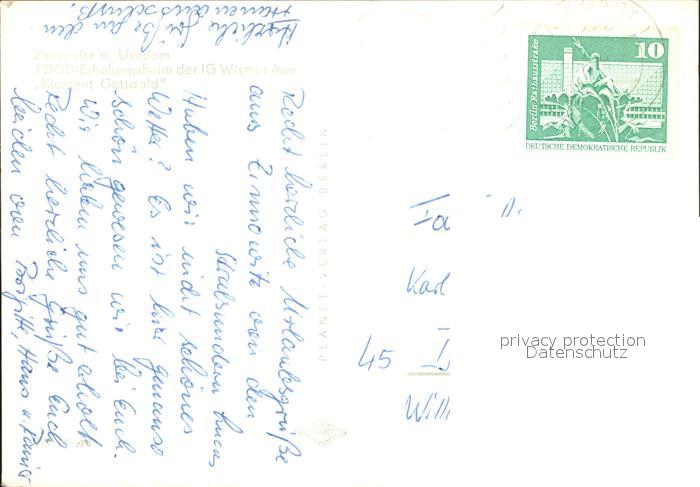 Zinnowitz a. Usedom
FDGB-Erholungsheim der IG Wismut Aue
„Klement Gottwald"
Recht herzliche Urlaubsgrüße
aus Zinnowitz von den
Stralsundern Lucas
Haben wir nicht schönes
Wetter? Es ist hier genauso
schön gewesen wie bei Euch.
Wir haben uns gut erholt.
Recht herzliche Grüße Euch
beiden von Brigitte, Hans u. Rainer
Herzliche Grüße an den
PLANET-VERLAG BERLIN
10
Berlin-Rathausstraße
DEUTSCHE DEMOKRATISCHE REPUBLIK
Fa
Karl
45
Will
privacy protection
Datenschutz